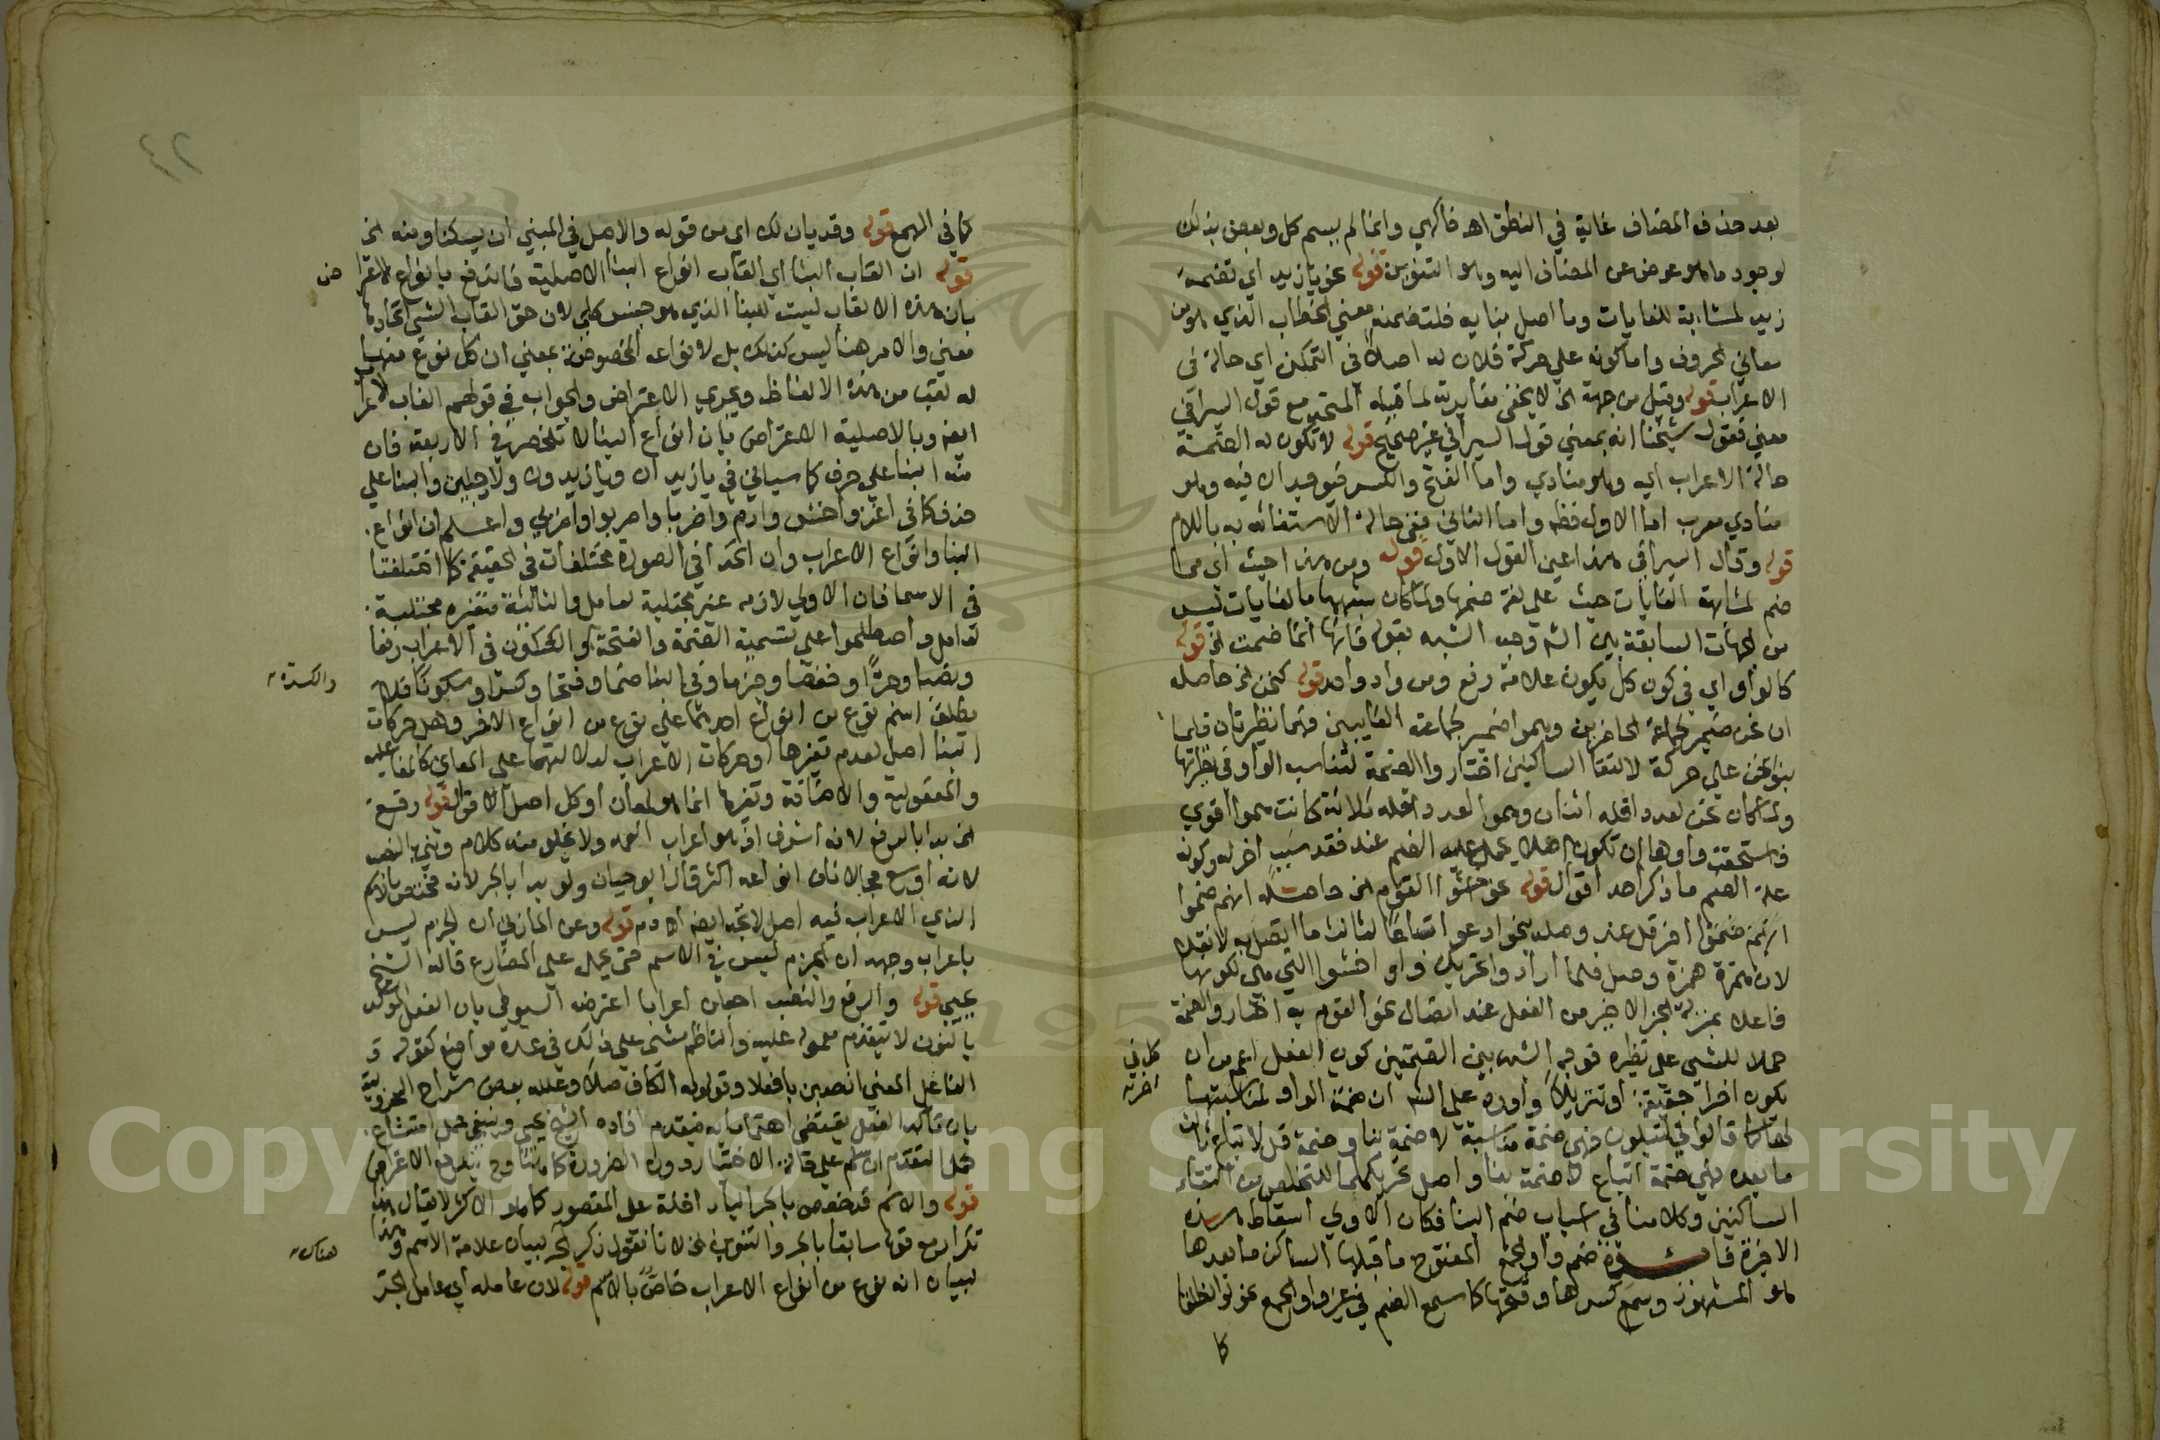 بعد حذف المضاف غاية في النطق اهـ فاكهي وانما لم يسم كل وبعض بذلك
لوجود ما هو عوض عن المضاف اليه وهو التنوين قوله نحو يا زيد اي تضمه
زيد لمشابهة للغايات وما اصل بنايه فلتضمنه معني الخطاب الذي هو من
معاني الحروف واما كونه علي حركة فلان له اصلا في التمكن اي حالة في
الاعراب قوله وقيل من جهة الخ لا يخفى مغايرته لما قبله مع قول السيرافي
معني فقول شيخنا انه بمعني قول السيرافي غير صحيح قوله لا تكون له الضمة
حالة الاعراب اي وهو منادي واما الفتح والكسر فيوجدان فيه وهو
منادي معرب اما الاول فظ واما الثاني ففي حالة الاستغاثه به باللام
قوله وقال السيرافي هذا عين القول الاول قوله ومن هذا حيث اي مما
ضم لمشابهة الغايات حيث علي لغة ضمها ولما كان شبهها بالغايات ليس
من الجهات السابقة بين الش وجه الشبه بقوله فانها انما ضمت الخ قوله
كالواو اي في كون كل يكون علامة رفع ومن واد واحد قوله كنحن الخ حاصله
ان نحن ضمير لجماعة الحاضرين وهمو ضمير لجماعة الغايبين فهما نظيرتان فلما
بنوا نحن علي حركة لالتقا الساكنين اختاروا الضمة لتناسب الواو في نظيرتها
ولما كان نحن لعدد اقله اثنان وهمو لعدد اقله ثلاثة كانت همو اقوي
فاستحقت واوها ان تكون اصلا يحمل عليه الضم عند فقد سبب اخر له وكونه
علة الضم ما ذكر احد اقوال قوله نحو اخشوا القوم الخ حاصله انهم ضموا
لان همزة همزة وصل فلما ارادوا تحريك واو اخشوا التي هي لكونها
فاعلا بمنزلة الجزء الاخير من الفعل عند اتصال نحو القوم به اختاروا الضمة
حملا للشي علي نظيره فوجه الشبه بين الضمتين كون الفعل اعم من ان
كل في اخر
يكون اخرا حقيقة او تنزيلا واورد علي الش ان ضمة الواو لمناسبتها
لها كما قالوا في لتبلون فهي ضمة مناسبة لا ضمة بنا وضمة قل لاتباع ثالث
ما بعده فهي ضمة اتباع لا ضمة بنا واصل تحريكهما للتخلص من التقاء
الساكنين وكلامنا في اسباب ضم البنا فكان الاولي اسقاط هذه
الاخيرة فائدة ضم واو الجمع المفتوح ما قبلها الساكن ما بعدها
هو المشهور وسمع كسرها وفتحها كما سمع الضم في غير واو الجمع نحو لو انطلقنا
كما
٤٢
كما في الهمع قوله وقد بان لك اي من قوله والاصل في المبني ان يسكنا ومنه الخ
قوله ان القاب البنا اي القاب انواع البنا الاصلية فاندفع بانواع الاعتراض
بان هذه الالقاب ليست للبنا الذي هو جنس كلي لان حق القاب الشي اتحادها
معني والامر هنا ليس كذلك بل لانواعه المخصوصة بمعني ان كل نوع منها
له لقب من هذه الالفاظ ويجري الاعتراض والجواب في قولهم القاب الاعراب
ايضا وبالاصلية الاعتراض بان انواع البنا لا تنحصر في الاربعة فان
منه البنا علي حرف كما سياتي في يا زيدان ويا زيدون ولا رجلين والبنا علي
حذف كما في اغز واخش وارم واضربا واضربوا واضربي واعلم ان انواع
البنا وانواع الاعراب وان اتحدا في الصورة مختلفات في الحقيقة كما اختلفتا
في الاسما فان الاولي لازمه غير مجتلبة بعامل والثانية متغيره مجتلبة
بعامل واصطلحوا علي تسمية الضمة والفتحة والسكون في الاعراب رفعا
والكسرة
ونصبا وجرا وخفضا وجزما وفي البنا ضما وفتحا وكسرا وسكونا فلا
يطلق اسم نوع من انواع احدهما علي نوع من انواع الاخر وهل حركات
البنا اصل لعدم تغيرها او حركات الاعراب لدلالتها علي المعاني كالفاعلية
والمفعولية والاضافة وتغيرها انما هو لمعان او كل اصل اقوال قوله رفع
الخ بدا بالرفع لانه اشرف اذ هو اعراب العمد ولا يخلو منه كلام وثني بالنصب
لانه اوسع مجالا فان انواعه اكثر قال ابو حيان ولو بدا بالجر لانه مختص بالاسم
الذي الاعراب فيه اصل لاتجه ايضا قوله وعن المازني ان الجزم ليس
باعراب وجهه ان الجزم ليس في الاسم حتى يحمل علي المضارع قاله الشيخ
يحيي قوله والرفع والنصب اجعلن اعرابا اعترضه السيوطي بان الفعل المؤكد
بالنون لا يتقدم معموله عليه والناظم مشى علي ذلك في عدة مواضع كقوله و
الفاعل المعني انصبن بافعلا وقوله الكاف صلا وعلله بعض شراح الجزولية
بان تاكيد الفعل يقتضي اهتماما به فيقدم افاده الشيخ يحيي وينبغي حمل امتناع
حمل التقدم ان سلم علي حالة الاختيار دون الضرورة كما هنا وح يندفع الاعتراض
قوله والاسم قد خصص بالجر الباء داخلة علي المقصور كما هو الاكثر لا يقال هذا
تكرار مع قوله سابقا بالجر والتنوين الخ لانا نقول ذكر الجر لبيان علامة الاسم وهذا
هناك
لبيان انه نوع من انواع الاعراب خاص بالاسم قوله لان عامله اي عامل الجر
Copyright © King Saud University
1957